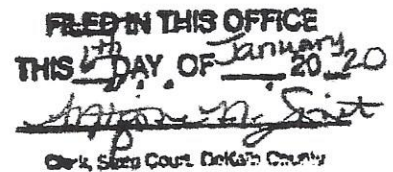 FILED IN THIS OFFICE
THIS DAY OF January 20 20
Clerk, State Court, DeKalb County